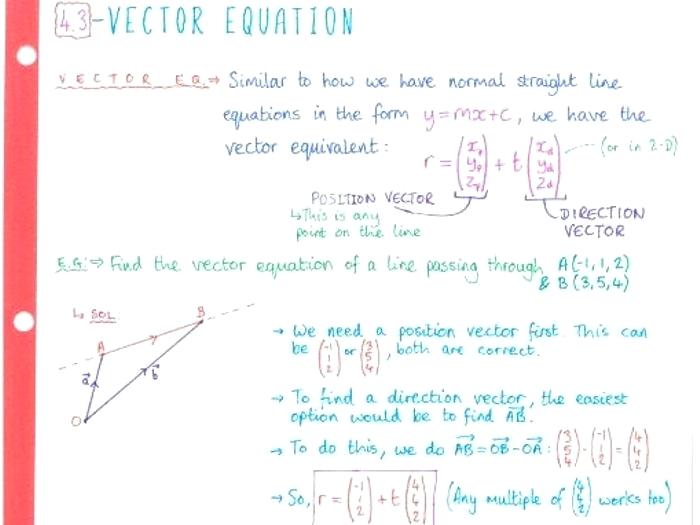 4.3 - VECTOR EQUATION
VECTOR EQ. ⇒ Similar to how we have normal straight line
equations in the form y=mx+c, we have the
vector equivalent: r = (xₚ yₚ zₚ) + t (x_d y_d z_d) (or in 2-D)
POSITION VECTOR
↳ This is any
point on the line
DIRECTION
VECTOR
E.G: ⇒ Find the vector equation of a line passing through A(-1, 1, 2)
& B(3, 5, 4)
↳ SOL
A
B
a
b
O
→ We need a position vector first. This can
be (-1 1 2) or (3 5 4), both are correct.
→ To find a direction vector, the easiest
option would be to find AB.
→ To do this, we do AB = OB - OA : (3 5 4) - (-1 1 2) = (4 4 2)
→ So, r = (-1 1 2) + t (4 4 2) (Any multiple of (4 4 2) works too)